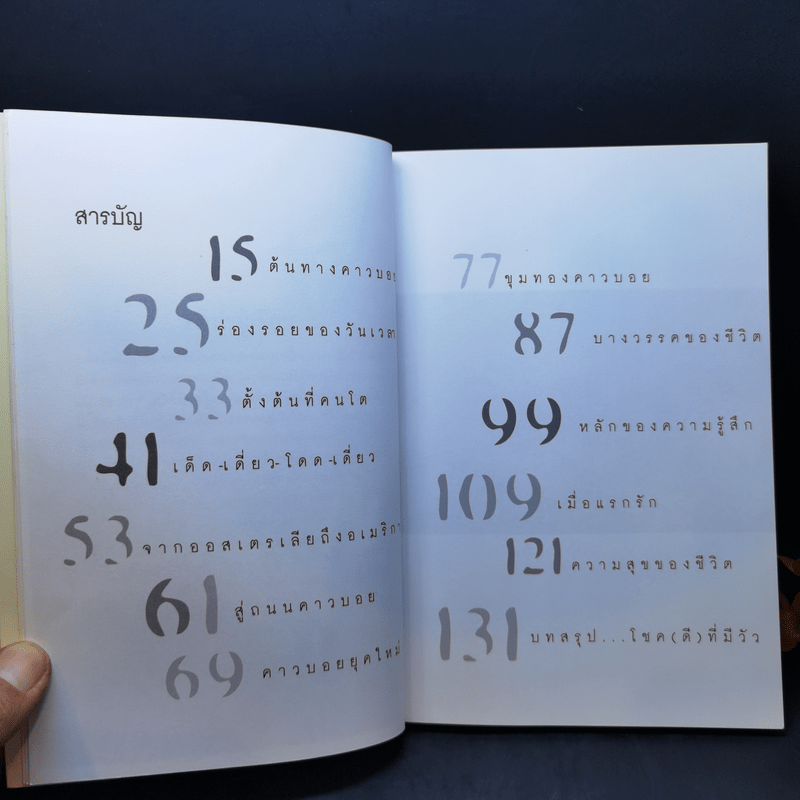 สารบัญ
15 ต้นทางคาวบอย
25 ร่องรอยของวันเวลา
33 ตั้งต้นที่คนโต
41 เด็ด-เดี่ยว-โดด-เดี่ยว
53 จากออสเตรเลียถึงอเมริกา
61 สู่ถนนคาวบอย
69 คาวบอยยุคใหม่
77 ขุมทองคาวบอย
87 บางวรรคของชีวิต
99 หลักของความรู้สึก
109 เมื่อแรกรัก
121 ความสุขของชีวิต
131 บทสรุป...โชค(ดี)ที่มีวัว